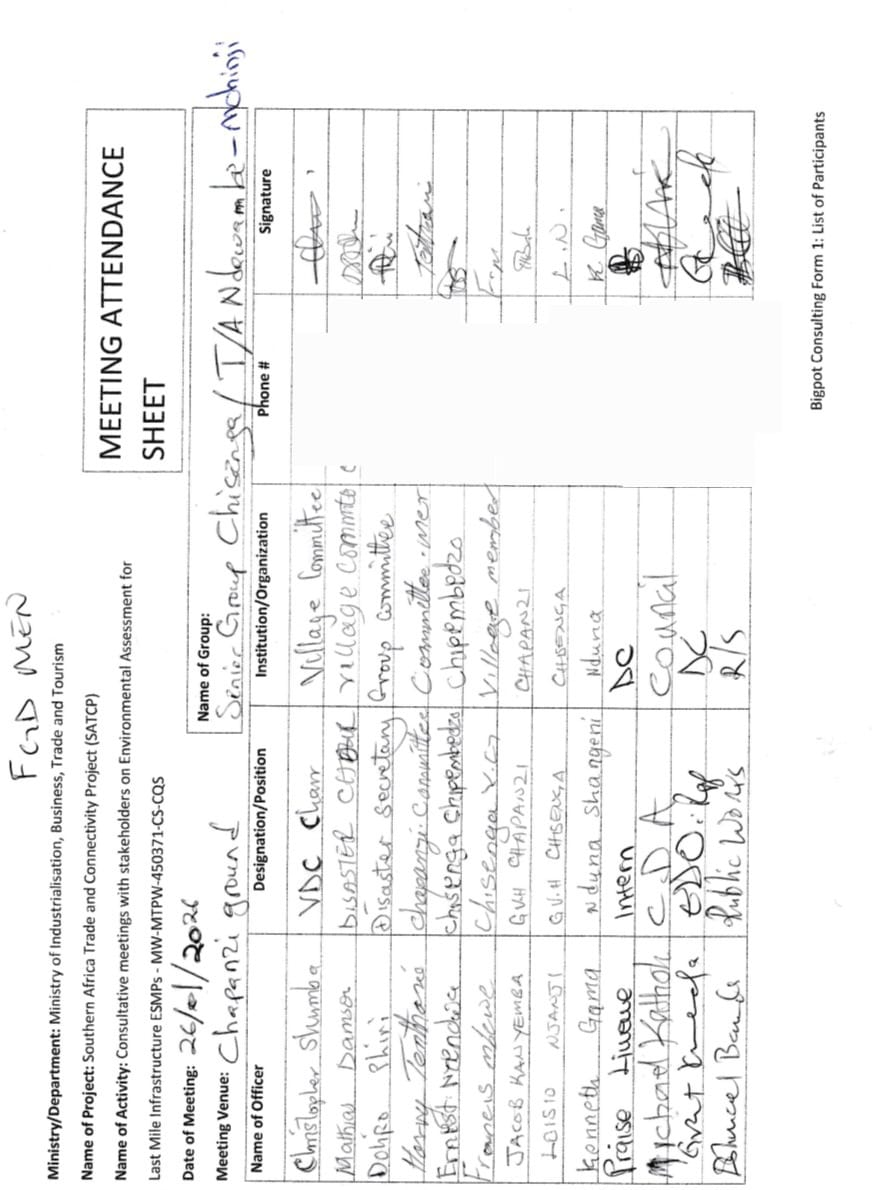 FGD MEN
Ministry/Department: Ministry of Industrialisation, Business, Trade and Tourism
Name of Project: Southern Africa Trade and Connectivity Project (SATCP)
Name of Activity: Consultative meetings with stakeholders on Environmental Assessment for
Last Mile Infrastructure ESMPs - MW-MTPW-450371-CS-CQS
MEETING ATTENDANCE
SHEET
Date of Meeting: 26/01/2026
Meeting Venue: Chapanzi ground
Name of Group:
Senior Group Chisenga/ T/A Ndawambe - mchinji
Name of Officer Designation/Position Institution/Organization Phone # Signature
Christopher Shumba VDC Chair Village Committee
Mathias Damson DISASTER CHAIR village committe
Dohiro Phiri Disaster Secretary Group committee
Harvey Tenthani Chapanzi Committee Committee . mer Tenthani
Ernest Chisenga Chipembedzo Chipembedzo
Francis Chisenga Village member F.M
JACOB KANYEMBA GVH CHAPANZI CHAPANZI
LOISIO NJANJI G.V.H CHISENGA CHISENGA L.N.
Kenneth Gama Nduna Shangeni Nduna K Gama
Praise Liwewe Intern DC
Michael CDA Council
Grant EDO: Rep DC
Banda Public Works R/S
Bigpot Consulting Form 1: List of Participants